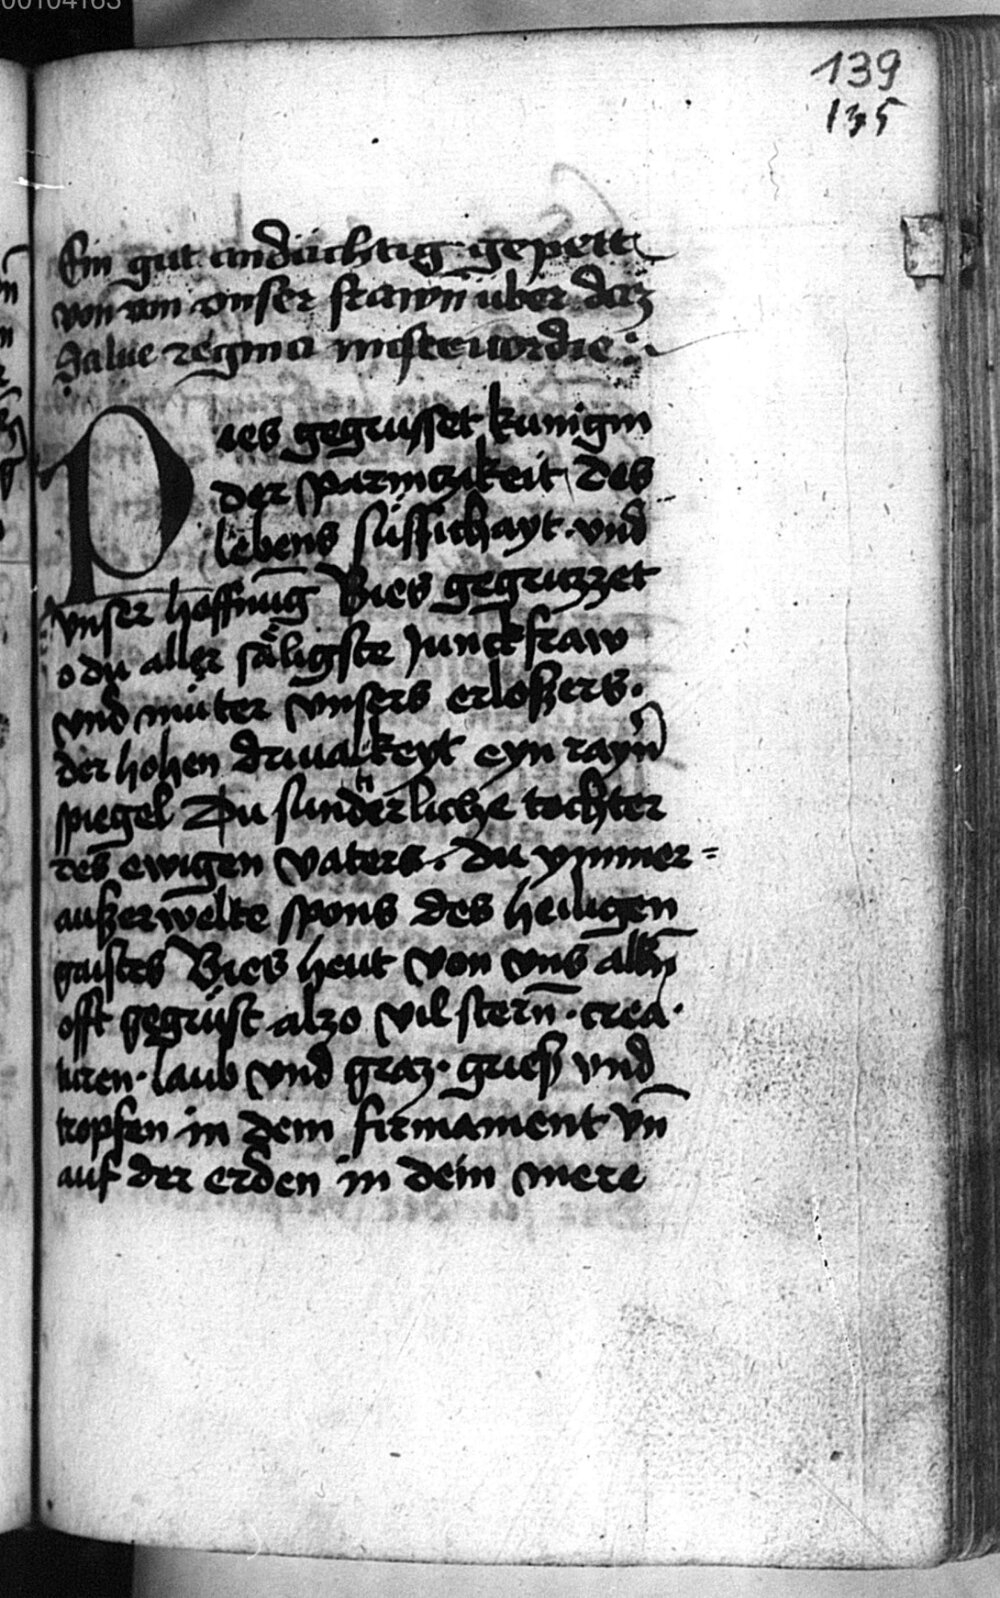 00104163
139
135
Ein gut andächtig gepett
von vnser frawn̄ über daz
Salue regina misericordie
Pies gegrüsset kunigin
der parmczikeit des
lebens süssichayt · vnd
vnser hoffnūg Bies gegruzzet
o du aller säligste Junckfraw
vnd müter vnsers erloßers ·
der hohen driualtkeyt eyn rayn̄
spiegel Du sunderliche tochter
des ewigen vaters · du ymmer =
außerwelte spons des heiligen
gaistes Bies heut von vns alln̄
offt gegrüst alzo vil stern̄ · crea ·
turen · laub vnd graz · grieß vnd
tropfen in dem firmament vn̄
auf der erden in dem mere